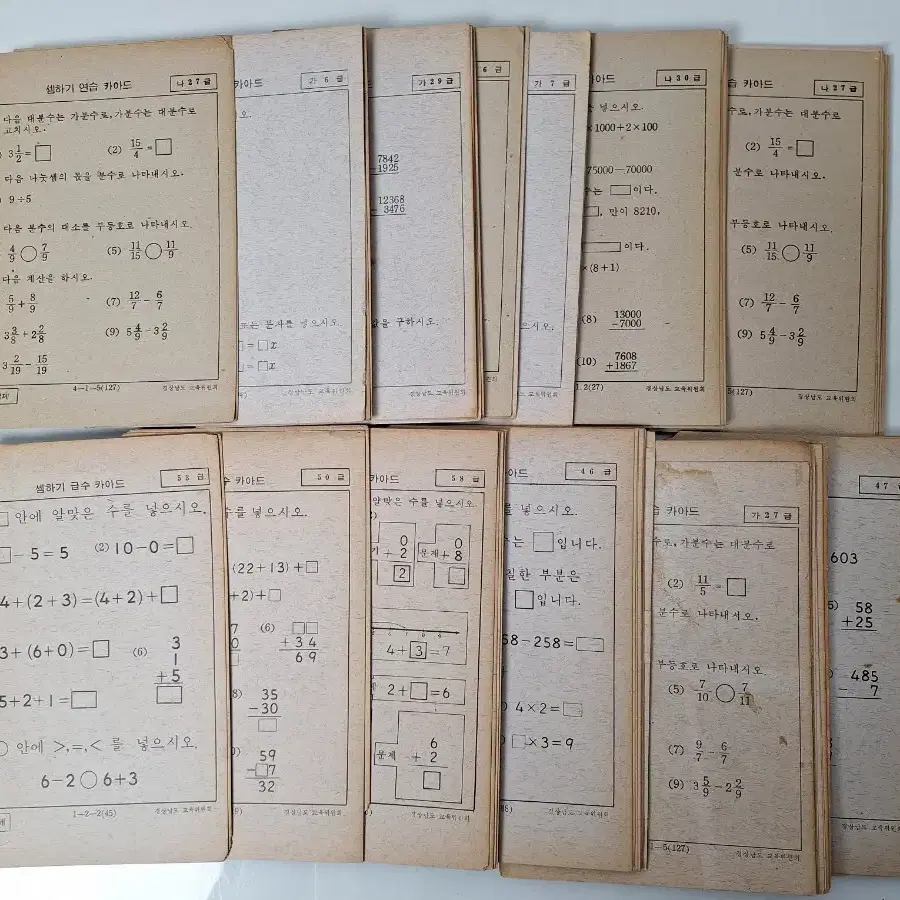 셈하기 연습 카아드
나 27 급
다음 대분수는 가분수로, 가분수는 대분수로
고치시오.
3 1/2 = □
(2) 15/4 = □
다음 나눗셈의 몫을 분수로 나타내시오.
9÷5
다음 분수의 대소를 부등호로 나타내시오.
4/9 ○ 7/9
(5) 11/15 ○ 11/9
다음 계산을 하시오.
5/9 + 8/9
(7) 12/7 − 6/7
3 3/8 + 2 2/8
(9) 5 4/9 − 3 2/9
3 2/19 − 15/19
4—1—5(127)
경상남도 교육위원회
카아드
가 6 급
또는 문자를 넣으시오.
= □x
= □x
카아드
가 29 급
7842
−1925
12368
− 3476
값을 구하시오.
경상남도 교육위원회
6 급
가 7 급
으시오.
카아드
나 30 급
넣으시오.
×1000+2×100
75000−70000
는 □이다.
□, 만이 8210,
□이다.
×(8+1)
(8) 13000
−7000
(10) 7608
+1867
1.2(27)
경상남도 교육위원회
습 카아드
나 27 급
수로, 가분수는 대분수로
(2) 15/4 = □
분수로 나타내시오.
부등호로 나타내시오.
(5) 11/15 ○ 11/9
(7) 12/7 − 6/7
(9) 5 4/9 − 3 2/9
5(127)
경상남도 교육위원회
셈하기 급수 카아드
53 급
□ 안에 알맞은 수를 넣으시오.
□−5=5
(2) 10−0=□
4+(2+3)=(4+2)+□
3+(6+0)=□
(6) 3
1
+5
□
5+2+1=□
○ 안에 >,=,< 를 넣으시오.
6−2○6+3
1—2—2(45)
경상남도 교육위원회
수 카아드
50 급
수를 넣으시오.
(22+13)+□
+2)+□
(6) □□
+34
69
35
−30
□
59
−□7
32
경상남도 교육위원회
카아드
58 급
알맞은 수를 넣으시오.
0
+ 2
2
문제
0
+ 8
□
4+3=7
2+□=6
문제
6
+ 2
□
경상남도 교육위원회
카아드
46 급
를 넣으시오.
는 □입니다.
칠한 부분은
□입니다.
58−258=□
4×2=□
□×3=9
경상남도 교육위원회
습 카아드
가 27 급
수로, 가분수는 대분수로
(2) 11/5 = □
분수로 나타내시오.
부등호로 나타내시오.
(5) 7/10 ○ 7/11
(7) 9/7 − 6/7
(9) 3 5/9 − 2 2/9
1—5(127)
경상남도 교육위원회
47 급
603
58
+25
485
− 7